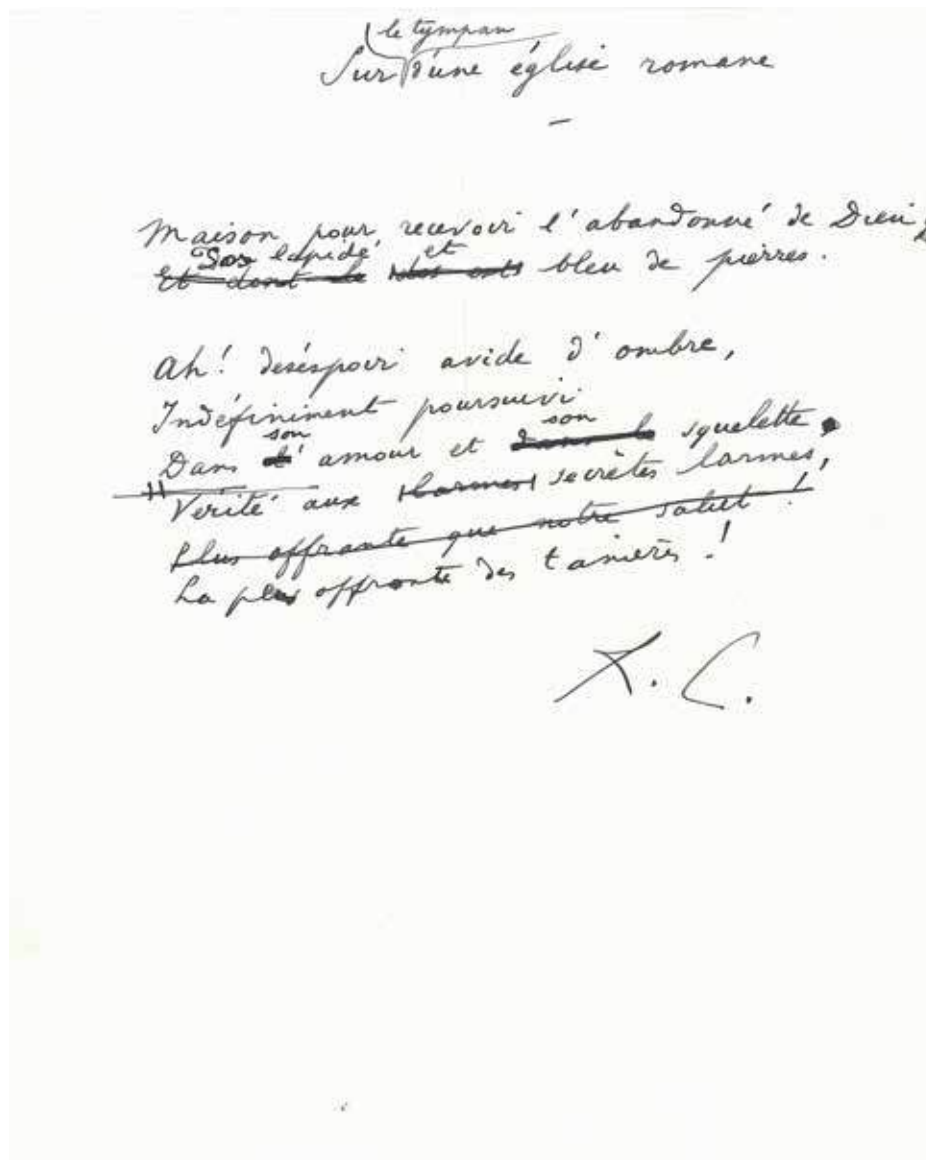 le tympan
Sur d'une église romane
–
Maison pour recevoir l'abandonné de Dieu,
Dos lapidé et
Et dont le dos est bleu de pierres.
Ah! déséspoir avide d'ombre,
Indéfiniment poursuivi
son son
Dans l'amour et dans le squelette.
Vérité aux larmes secrètes larmes,
Plus offrante que notre salut!
La plus offrante des tanières!
R. C.